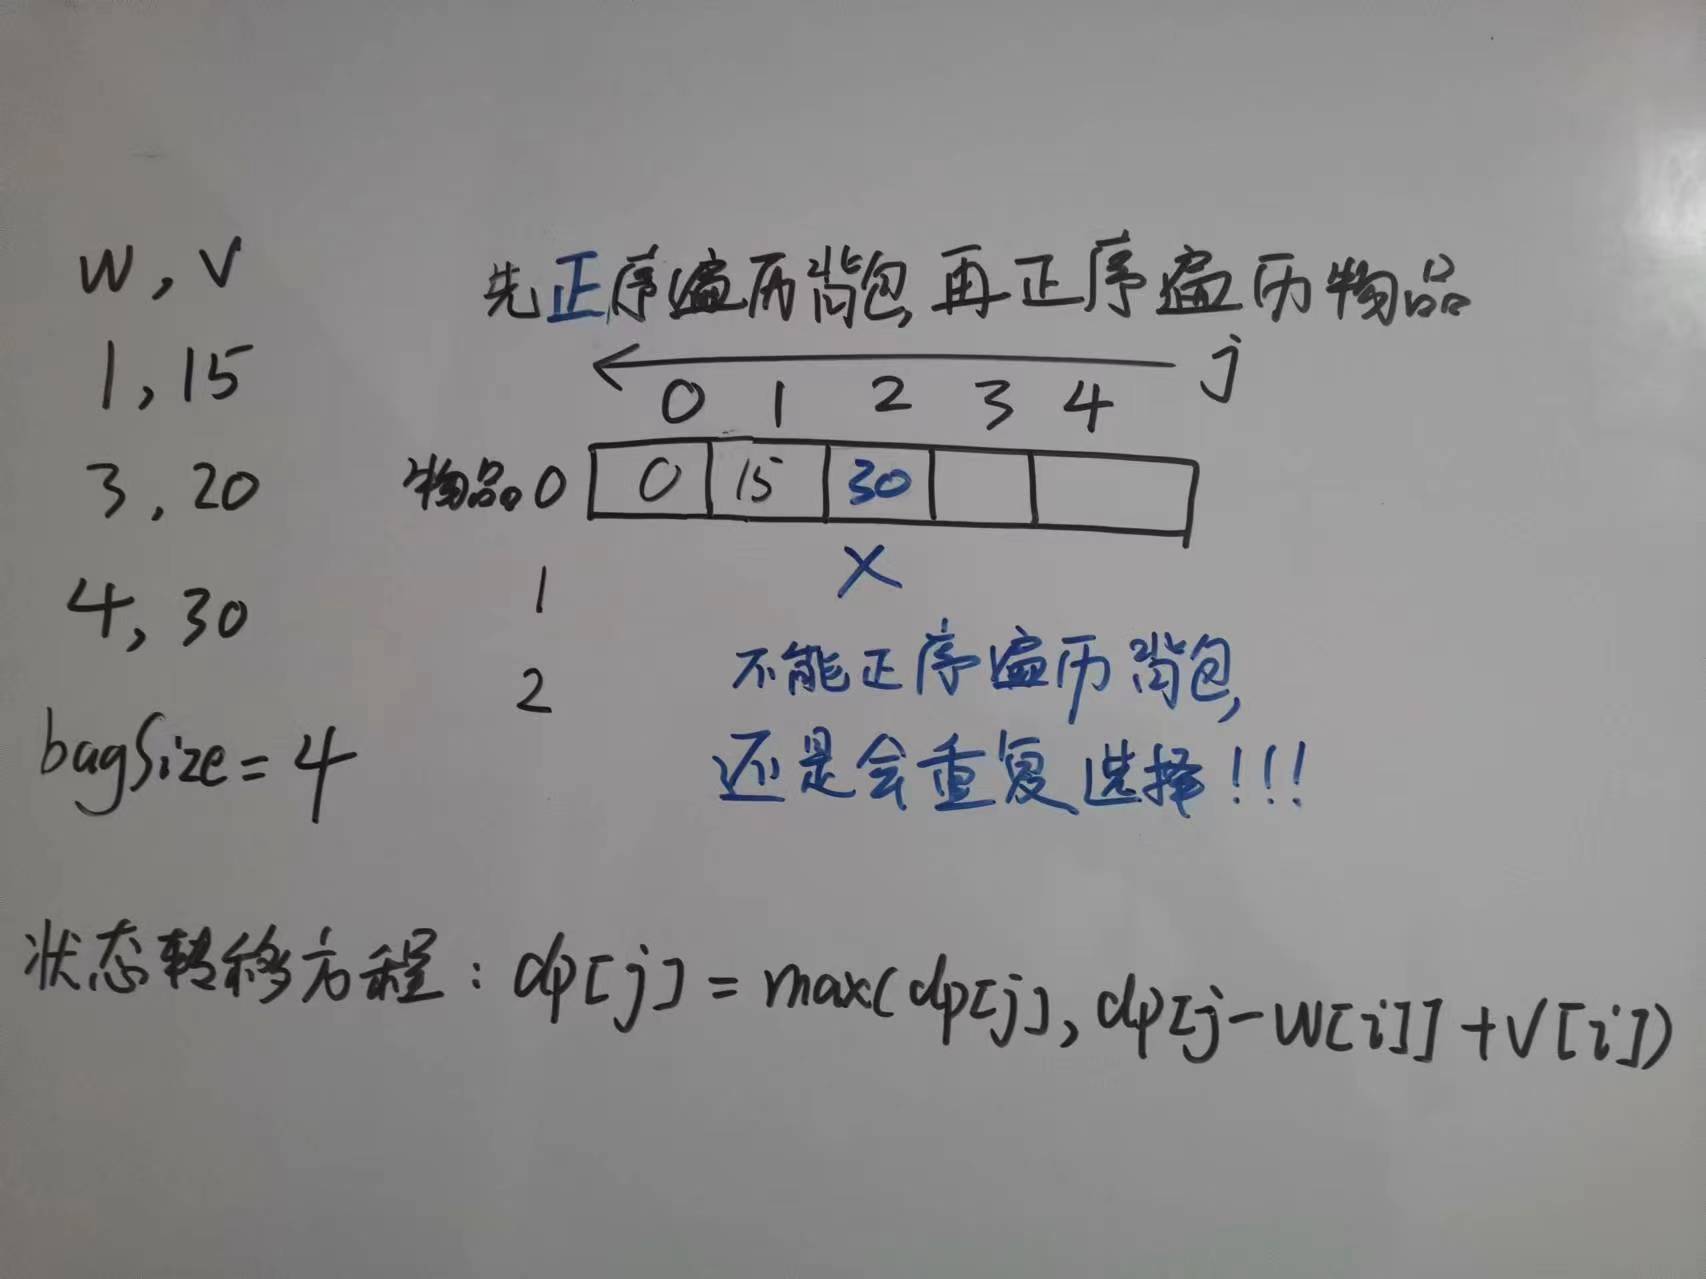 w,v
1,15
3,20
4,30
bagSize=4
先正序遍历背包,再正序遍历物品
j
0 1 2 3 4
物品0 0 15 30
1
2
×
不能正序遍历背包,
还是会重复选择!!!
状态转移方程:dp[j]=max(dp[j],dp[j-w[i]]+v[i])